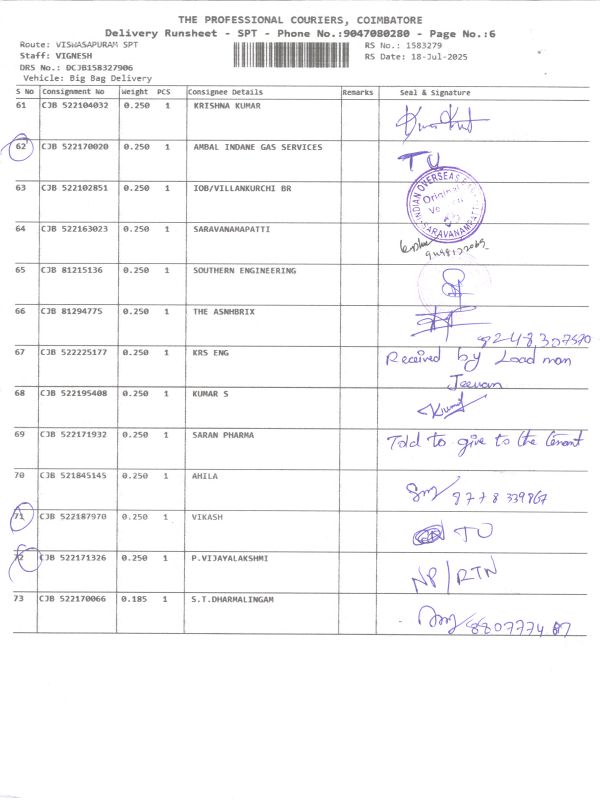 THE PROFESSIONAL COURIERS, COIMBATORE
Delivery Runsheet - SPT - Phone No.:9047080280 - Page No.:6
Route: VISWASAPURAM SPT RS No.: 1583279
Staff: VIGNESH RS Date: 18-Jul-2025
DRS No.: DCJB158327906
Vehicle: Big Bag Delivery
S No Consignment No Weight PCS Consignee Details Remarks Seal & Signature
61 CJB 522104032 0.250 1 KRISHNA KUMAR
62 CJB 522170020 0.250 1 AMBAL INDANE GAS SERVICES TU
63 CJB 522102851 0.250 1 IOB/VILLANKURCHI BR
INDIAN OVERSEAS
Original
SARAVANAMPATTI
64 CJB 522163023 0.250 1 SARAVANAMAPATTI
65 CJB 81215136 0.250 1 SOUTHERN ENGINEERING
66 CJB 81294775 0.250 1 THE ASNHBRIX
67 CJB 522225177 0.250 1 KRS ENG Received by Load man
Jeevan
68 CJB 522195408 0.250 1 KUMAR S
69 CJB 522171932 0.250 1 SARAN PHARMA Told to give to the tenant
70 CJB 521845145 0.250 1 AHILA 9778339867
71 CJB 522187970 0.250 1 VIKASH TU
72 CJB 522171326 0.250 1 P.VIJAYALAKSHMI NP/RTN
73 CJB 522170066 0.185 1 S.T.DHARMALINGAM